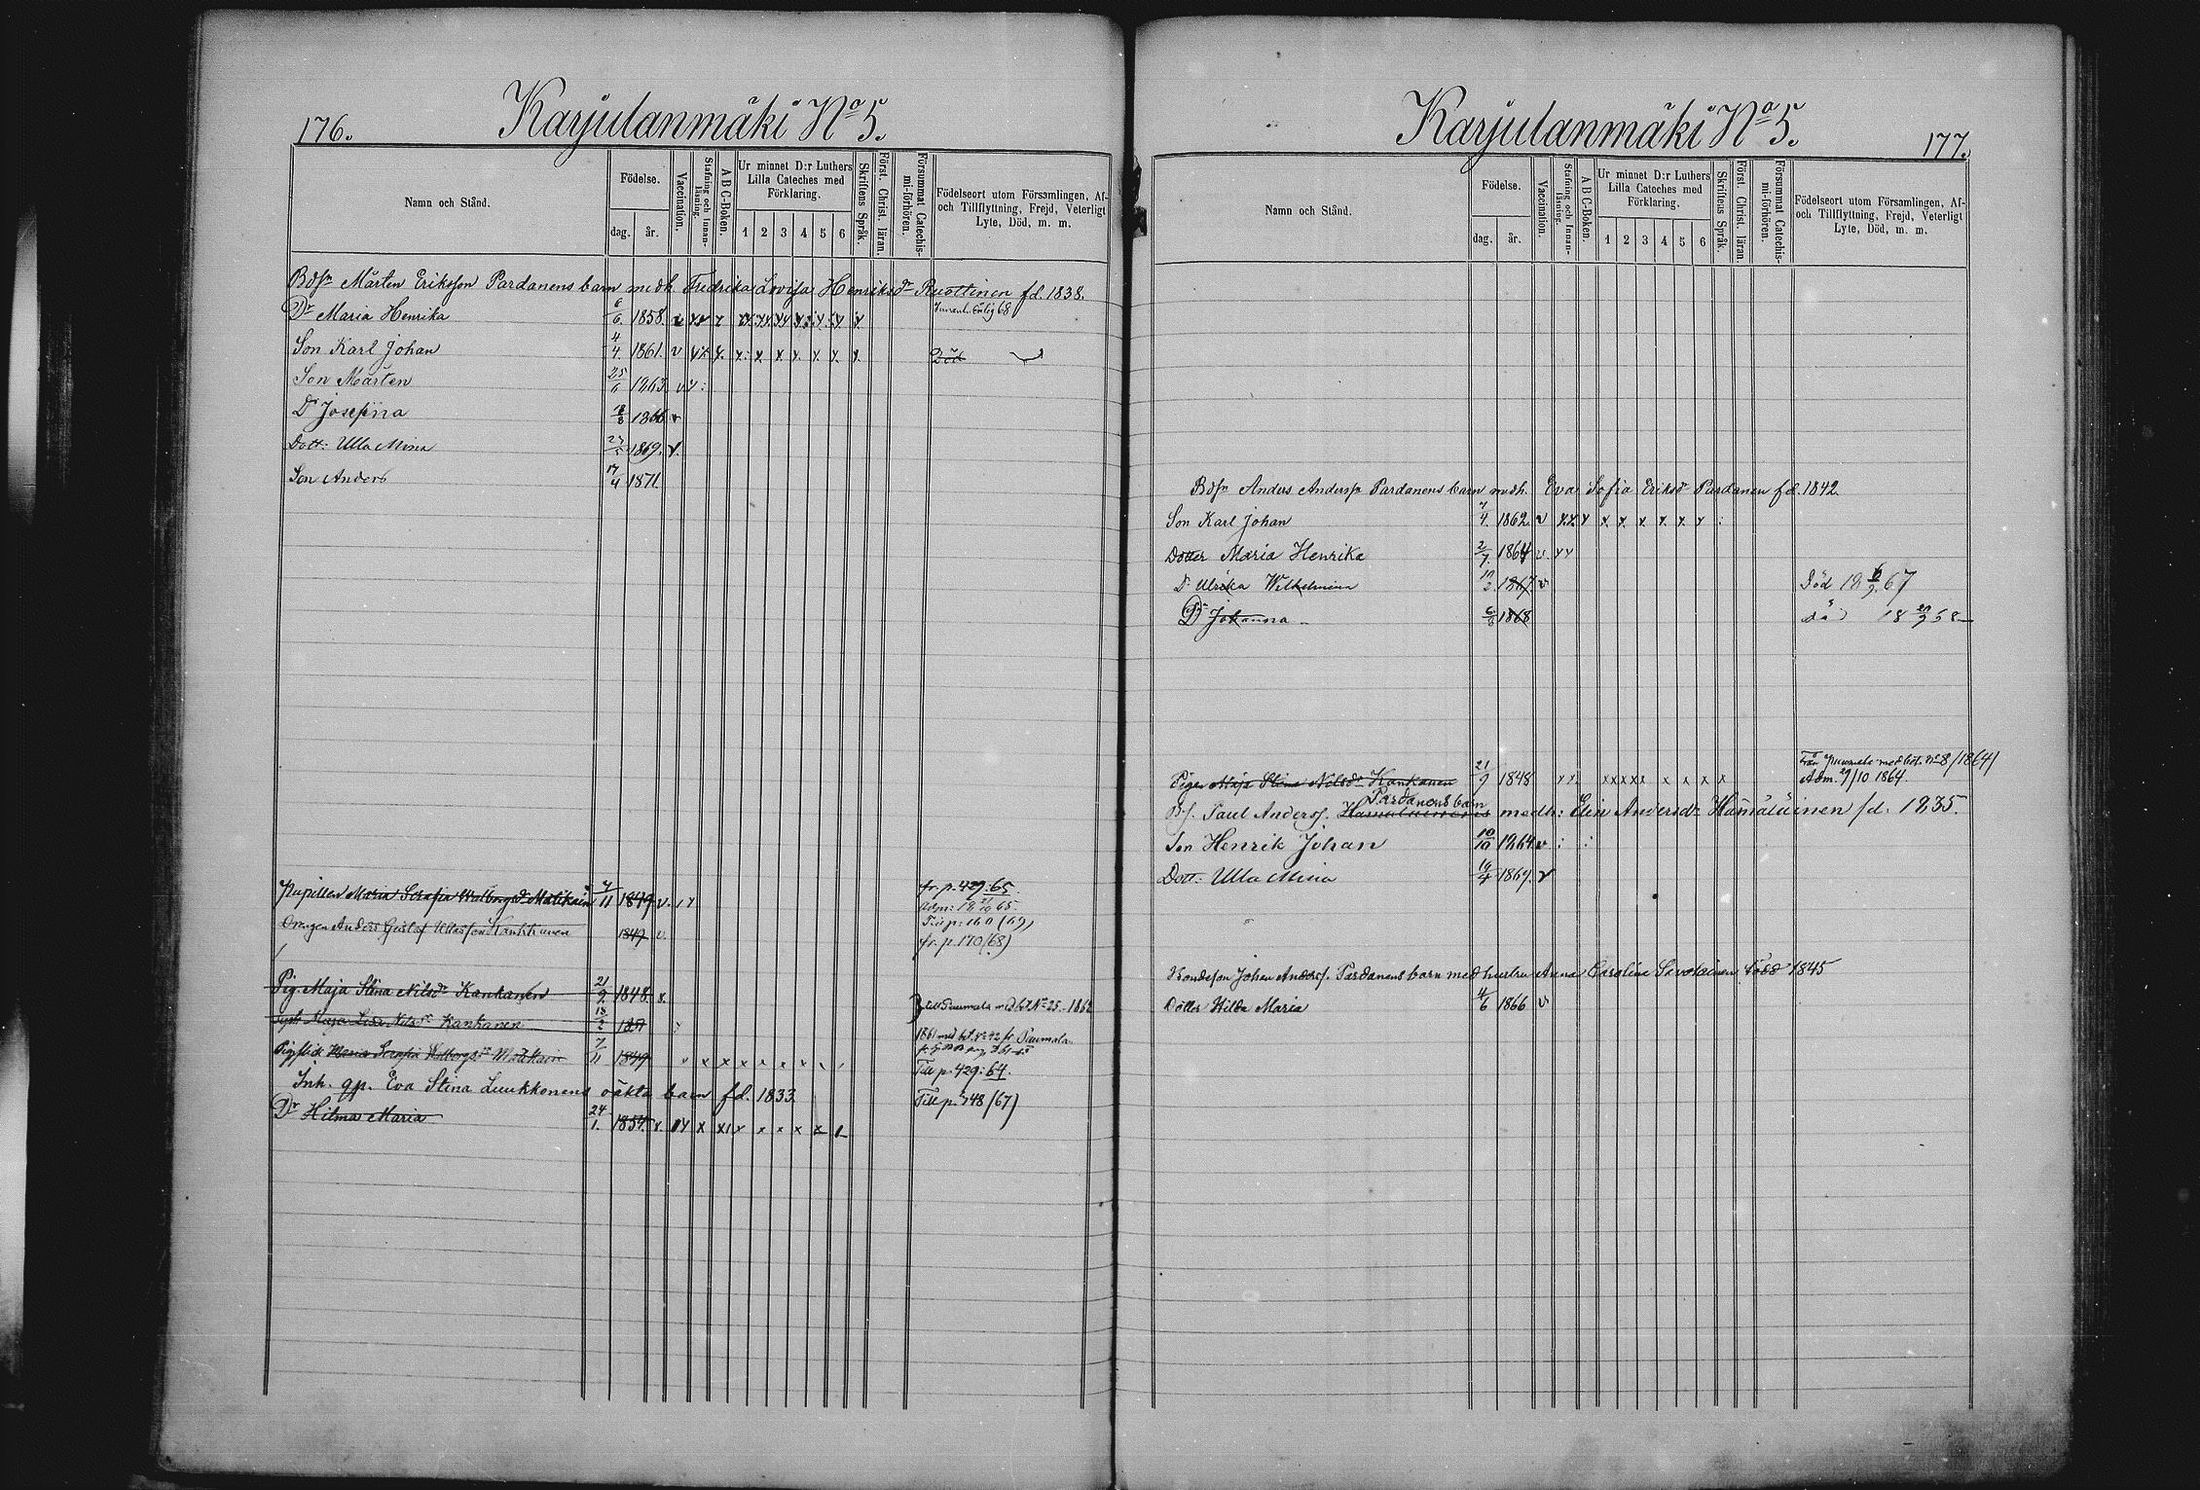 176.
Karjulanmäki No 5.
Namn och Stånd.
Födelse.
dag.
år.
Vaccination.
Stafning och Innan-läsning.
A B C-Boken.
Ur minnet D:r Luthers Lilla Cateches med Förklaring.
1 2 3 4 5 6
Skriftens Språk.
Först. Christ. läran.
Försummat Catechis-mi-förhören.
Födelseort utom Församlingen, Af- och Tillflyttning, Frejd, Veterligt Lyte, Död, m. m.
Bdsn Mårten Eriksson Pardanens barn medh. Fredrika Lovisa Henriksdr Ruottinen fd. 1838.
Dr Maria Henrika 6. 1858. v
Son Karl Johan 4/4. 1861. v Död
Son Mårten 25 1863. v
Dr Josefina 1866 v
Dott: Ulla Mina 1869.
Son Anders 17/4 1871.
Pupillen Maria Serafia Walborgsdr 7/11 1849 v. fr. p. 429:65.
Adm: 65.
Drengen Anders Gustaf 1849 v. Till p: 160 (69)
fr. p. 170 (68)
Pig. Maja Stina Nilsdr Kankanen 21/9. 1848.
Maja Lisa Nilsdr Kankanen 18/2 till Puumala med bet No 25. 1862
1861 med bet. No 42 fr. Puumala.
Maria Serafia Walborgsdr 7/11 1849
Till p. 429:64.
Inh. qp. Eva Stina Luukkonens oäkta barn fd. 1833.
Dr Hilma Maria 24/1. 1854. Till p. 748 (67)
Karjulanmäki No 5.
177.
Namn och Stånd.
Födelse.
dag.
år.
Vaccination.
Stafning och Innan-läsning.
A B C-Boken.
Ur minnet D:r Luthers Lilla Cateches med Förklaring.
1 2 3 4 5 6
Skriftens Språk.
Först. Christ. läran.
Försummat Catechis-mi-förhören.
Födelseort utom Församlingen, Af- och Tillflyttning, Frejd, Veterligt Lyte, Död, m. m.
Bdsn Anders Anderssn Pardanens barn medh. Eva Sofia Eriksdr Pardanen fd. 1842.
Son Karl Johan 4. 1862. v
Dotter Maria Henrika 2/7. 1864 v.
Dr Ulrika Wilhelmina 1867. v Död 18 67
Dr Johanna 1868 död 18
Pigan Maja Stina Nilsdr Kankanen 21/9 1848 Från Puumala med bet. No 8/1864)
Adm. 29/10 1864.
Pardanens barn
Bs. Paul Anderss. medh: Elin Andersdr Hämäläinen fd. 1835.
Son Henrik Johan 10/10 1864. v
Dott: Ulla Mina 1867. v
Bondeson Johan Anderss. Pardanens barn med hustrun Anna Carolina född 1845
Dotter Hilda Maria 4/6 1866 v